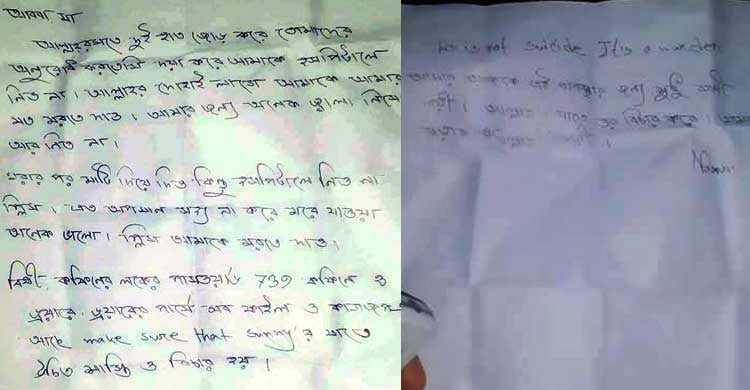 আব্বা মা
আল্লাহরওয়াস্তে দুই হাত জোড় করে তোমাদের
অনুরোধ করতেসি দয়া করে আমাকে হসপিটালে
নিও না। আল্লাহর দোহাই লাগে আমাকে আমার
মত মরতে দাও। আমার জন্য অনেক জ্বালা
আর নিও না।
মরার পর মাটি দিয়ে দিও কিন্তু হসপিটালে নিও না
প্লিজ। এত অপমান সহ্য না করে মরে যাওয়া
অনেক ভালো। প্লিজ আমাকে মরতে দাও।
লকের পাসওয়ার্ড 739
ড্রয়ারে, ড্রয়ারের পার্সে সব ফাইল ও
আছে make sure that sunny'র যাতে
উচিত শাস্তি ও বিচার হয়।
is not suicide It's a murder
আমার এই অবস্থার জন্য সানী
দায়ী। আল্লাহ যেন ওর বিচার করে।